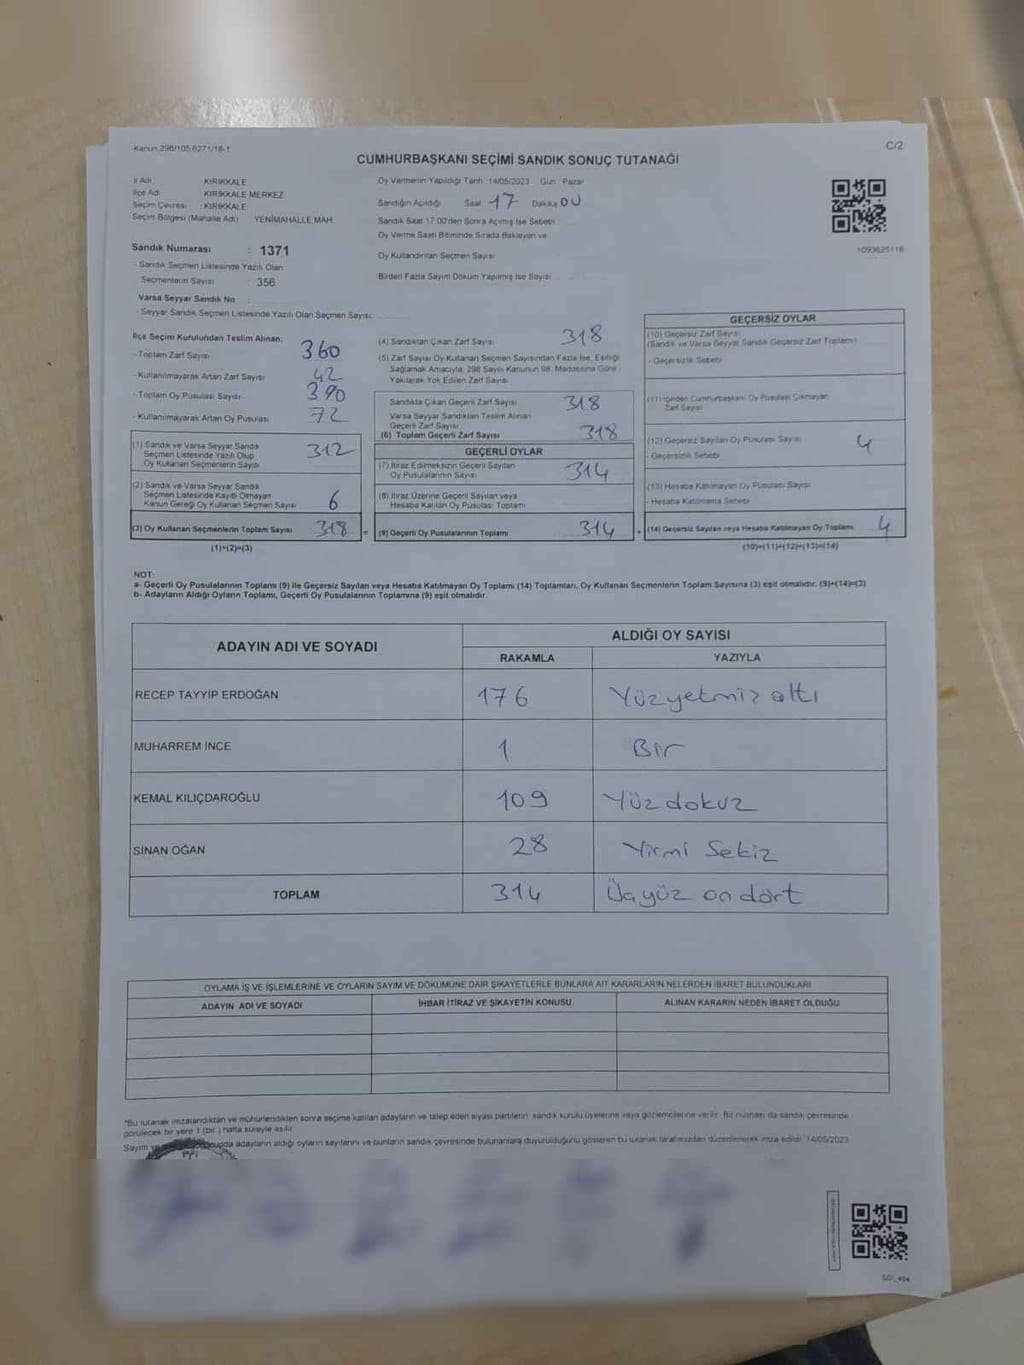 Kanun:298/105;6271/18-1
C/2
CUMHURBAŞKANI SEÇİMİ SANDIK SONUÇ TUTANAĞI
İl Adı : KIRIKKALE
İlçe Adı : KIRIKKALE MERKEZ
Seçim Çevresi : KIRIKKALE
Seçim Bölgesi (Mahalle Adı) YENİMAHALLE MAH.
Sandık Numarası : 1371
- Sandık Seçmen Listesinde Yazılı Olan
Seçmenlerin Sayısı : 356
Varsa Seyyar Sandık No :
- Seyyar Sandık Seçmen Listesinde Yazılı Olan Seçmen Sayısı:
Oy Vermenin Yapıldığı Tarih :14/05/2023 Gün : Pazar
Sandığın Açıldığı Saat 17 Dakika 00
Sandık Saat 17.00'den Sonra Açılmış İse Sebebi
Oy Verme Saati Bitiminde Sırada Bekleyen ve
Oy Kullandırılan Seçmen Sayısı
Birden Fazla Sayım Döküm Yapılmış İse Sayısı
1093625118
İlçe Seçim Kurulundan Teslim Alınan:
- Toplam Zarf Sayısı 360
- Kullanılmayarak Artan Zarf Sayısı 42
- Toplam Oy Pusulası Sayısı 390
- Kullanılmayarak Artan Oy Pusulası 72
(1) Sandık ve Varsa Seyyar Sandık
Seçmen Listesinde Yazılı Olup
Oy Kullanan Seçmenlerin Sayısı 312
(2) Sandık ve Varsa Seyyar Sandık
Seçmen Listesinde Kaydı Olmayan
Kanun Gereği Oy Kullanan Seçmen Sayısı 6
(3) Oy Kullanan Seçmenlerin Toplam Sayısı 318 =
(1)+(2)=(3)
(4) Sandıktan Çıkan Zarf Sayısı 318
(5) Zarf Sayısı Oy Kullanan Seçmen Sayısından Fazla İse, Eşitliği
Sağlamak Amacıyla, 298 Sayılı Kanunun 98. Maddesine Göre
Yakılarak Yok Edilen Zarf Sayısı
Sandıkta Çıkan Geçerli Zarf Sayısı 318
Varsa Seyyar Sandıktan Teslim Alınan
Geçerli Zarf Sayısı
(6) Toplam Geçerli Zarf Sayısı 318
GEÇERLİ OYLAR
(7) İtiraz Edilmeksizin Geçerli Sayılan
Oy Pusulalarının Sayısı 314
(8) İtiraz Üzerine Geçerli Sayılan veya
Hesaba Katılan Oy Pusulası Toplamı
(9) Geçerli Oy Pusulalarının Toplamı 314 +
GEÇERSİZ OYLAR
(10) Geçersiz Zarf Sayısı
(Sandık ve Varsa Seyyar Sandık Geçersiz Zarf Toplamı)
- Geçersizlik Sebebi
(11) İçinden Cumhurbaşkanı Oy Pusulası Çıkmayan
Zarf Sayısı
(12) Geçersiz Sayılan Oy Pusulası Sayısı 4
- Geçersizlik Sebebi
(13) Hesaba Katılmayan Oy Pusulası Sayısı
- Hesaba Katılmama Sebebi
(14) Geçersiz Sayılan veya Hesaba Katılmayan Oy Toplamı 4
(10)+(11)+(12)+(13)=(14)
NOT:
a- Geçerli Oy Pusulalarının Toplamı (9) ile Geçersiz Sayılan veya Hesaba Katılmayan Oy Toplamı (14) Toplamları, Oy Kullanan Seçmenlerin Toplam Sayısına (3) eşit olmalıdır. (9)+(14)=(3)
b- Adayların Aldığı Oyların Toplamı, Geçerli Oy Pusulalarının Toplamına (9) eşit olmalıdır.
ADAYIN ADI VE SOYADI
ALDIĞI OY SAYISI
RAKAMLA YAZIYLA
RECEP TAYYİP ERDOĞAN 176 Yüzyetmiz altı
MUHARREM İNCE 1 Bir
KEMAL KILIÇDAROĞLU 109 Yüzdokuz
SİNAN OĞAN 28 Yirmi Sekiz
TOPLAM 314 Üçyüz on dört
OYLAMA İŞ VE İŞLEMLERİNE VE OYLARIN SAYIM VE DÖKÜMÜNE DAİR ŞİKAYETLERLE BUNLARA AİT KARARLARIN NELERDEN İBARET BULUNDUKLARI
ADAYIN ADI VE SOYADI İHBAR İTİRAZ VE ŞİKAYETİN KONUSU ALINAN KARARIN NEDEN İBARET OLDUĞU
"Bu tutanak imzalandıktan ve mühürlendikten sonra seçime katılan adayların ve talep eden siyasi partilerin sandık kurulu üyelerine veya gözlemcilerine verilir. Bir nüshası da sandık çevresinde
görülecek bir yere 1 (bir ) hafta süreyle asılır.
Sayım adayların aldığı oyların sayılarını ve bunların sandık çevresinde bulunanlara duyurulduğunu gösteren bu tutanak tarafımızdan düzenlenerek imza edildi. 14/05/2023